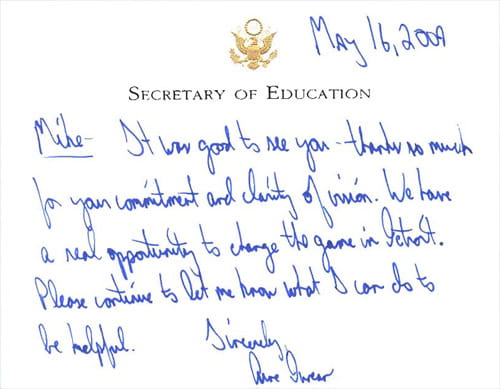 May 16, 2009
SECRETARY OF EDUCATION
Mike- It was good to see you - thanks so much
for your commitment and clarity of vision. We have
a real opportunity to change the game in Detroit.
Please continue to let me know what I can do to
be helpful.
Sincerely,
Arne Duncan